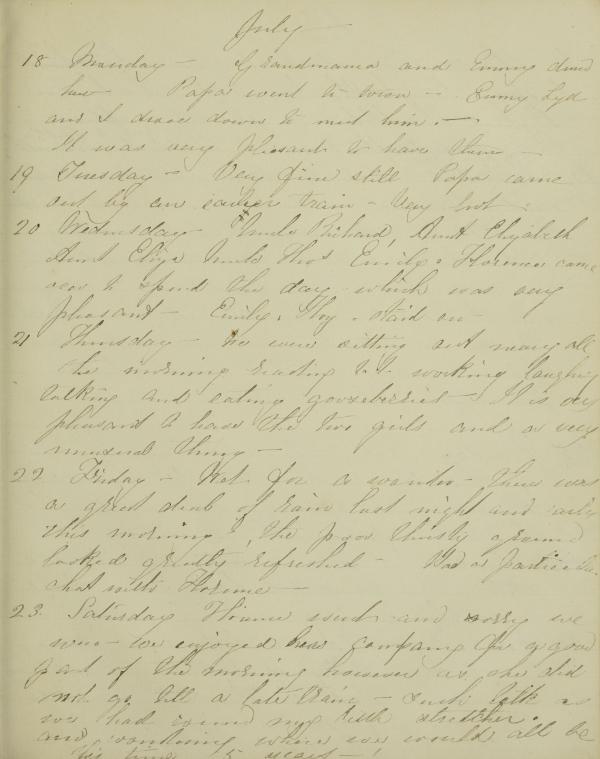 July
18 Monday - Grandmama and Emmy dined
here - Papa went to town - Emmy Lyd
and I drove down to meet him. -
It was very pleasant to have them -
19 Tuesday - Very fine still Papa came
out by an earlier train - Very hot -
20 Wednesday - Uncle Richard, Aunt Elizabeth
Aunt Eliza Uncle Thos Emily & Florence came
over to spend the day which was very
pleasant - Emily & Floy - staid on -
21 Thursday - We were sitting out nearly all
the morning reading to working laughing
talking and eating gooseberries - It is very
pleasant to have the two girls and a very
unusual thing -
22 Friday - Wet for a wonder - there was
a great deal of rain last night and early
this morning, the poor thirsty ground
looked greatly refreshed - Had a particular
chat with Florence -
23. Saturday Florence went and sorry we
were - we enjoyed her company for a good
part of the morning however as she did
not go till a late train - such talk as
we had round my stretcher.
and wondering where we would all be
this time 5 years - !